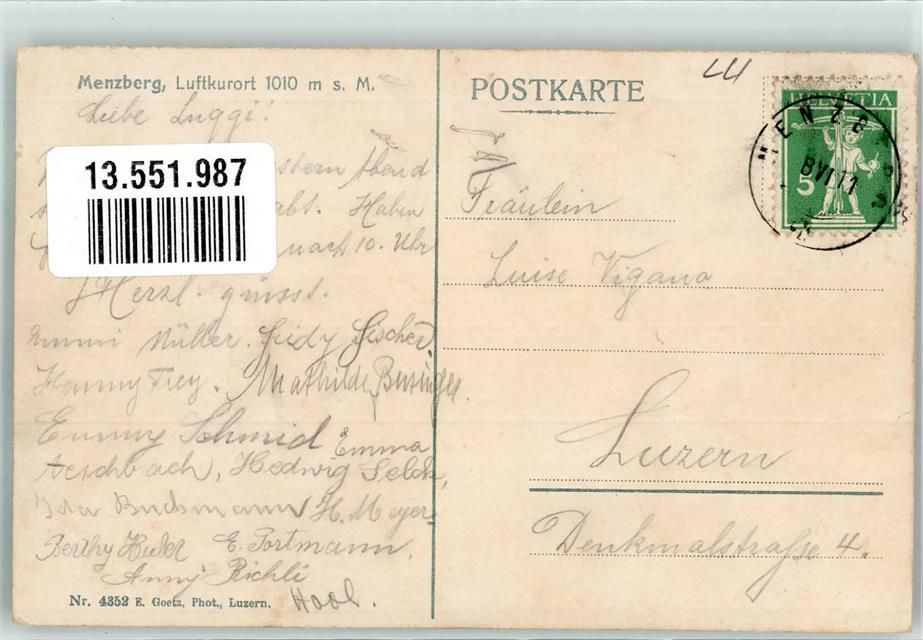 Menzberg, Luftkurort 1010 m s. M.
Liebe Luggi!
13.551.987
Abend
Haben
nach 10. Uhr
Herzl. grüsst.
Emmi Müller. Fridy Fischer,
Hanny Frey. Mathilde
Emmy Schmid Emma
Aeschbach, Hedwig
H. Meyer
Berthy E. Portmann.
Anny Richli
Hool.
Nr. 4352 E. Goetz, Phot., Luzern.
POSTKARTE
HELVETIA
5
MENZBERG
8 VI 11
Fräulein
Luise Vigano
Luzern
Denkmalstraße 4.